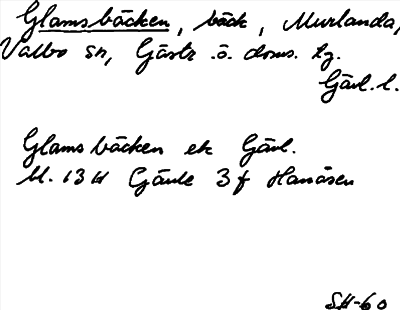 Glamsbäcken, bäck, Murlanda,
Valbo sn, Gästr. ö. doms. tg.
Gävl. l.
Glamsbäcken ek Gävl.
bl. 13 H Gävle 3 f Hanåsen
SH-60